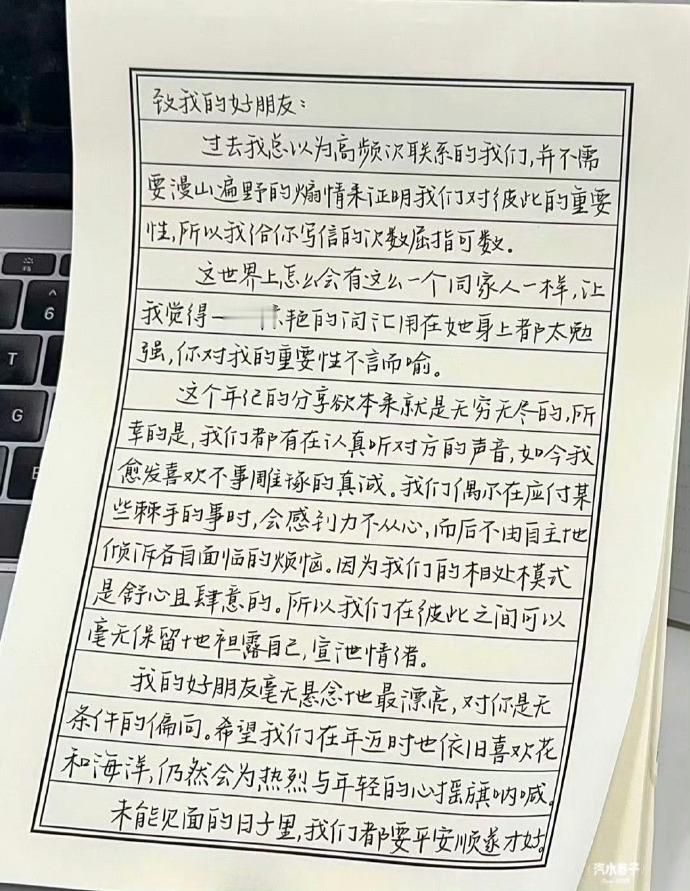 致我的好朋友：
过去我总以为高频次联系的我们，并不需
要漫山遍野的煽情来证明我们对彼此的重要
性，所以我给你写信的次数屈指可数。
这世界上怎么会有这么一个同家人一样，让
我觉得一 艳的词汇用在她身上都太勉
强，你对我的重要性不言而喻。
这个年纪的分享欲本来就是无穷无尽的，所
幸的是，我们都有在认真听对方的声音，如今我
愈发喜欢不事雕琢的真诚。我们偶尔在应付某
些棘手的事时，会感到力不从心，而后不由自主地
倾诉各自面临的烦恼。因为我们的相处模式
是舒心且肆意的。所以我们在彼此之间可以
毫无保留地袒露自己，宣泄情绪。
我的好朋友毫无悬念地最漂亮，对你是无
条件的偏向。希望我们在年迈时也依旧喜欢花
和海洋，仍然会为热烈与年轻的心摇旗呐喊。
未能见面的日子里，我们都要平安顺遂才好。
6
T
G
汽水